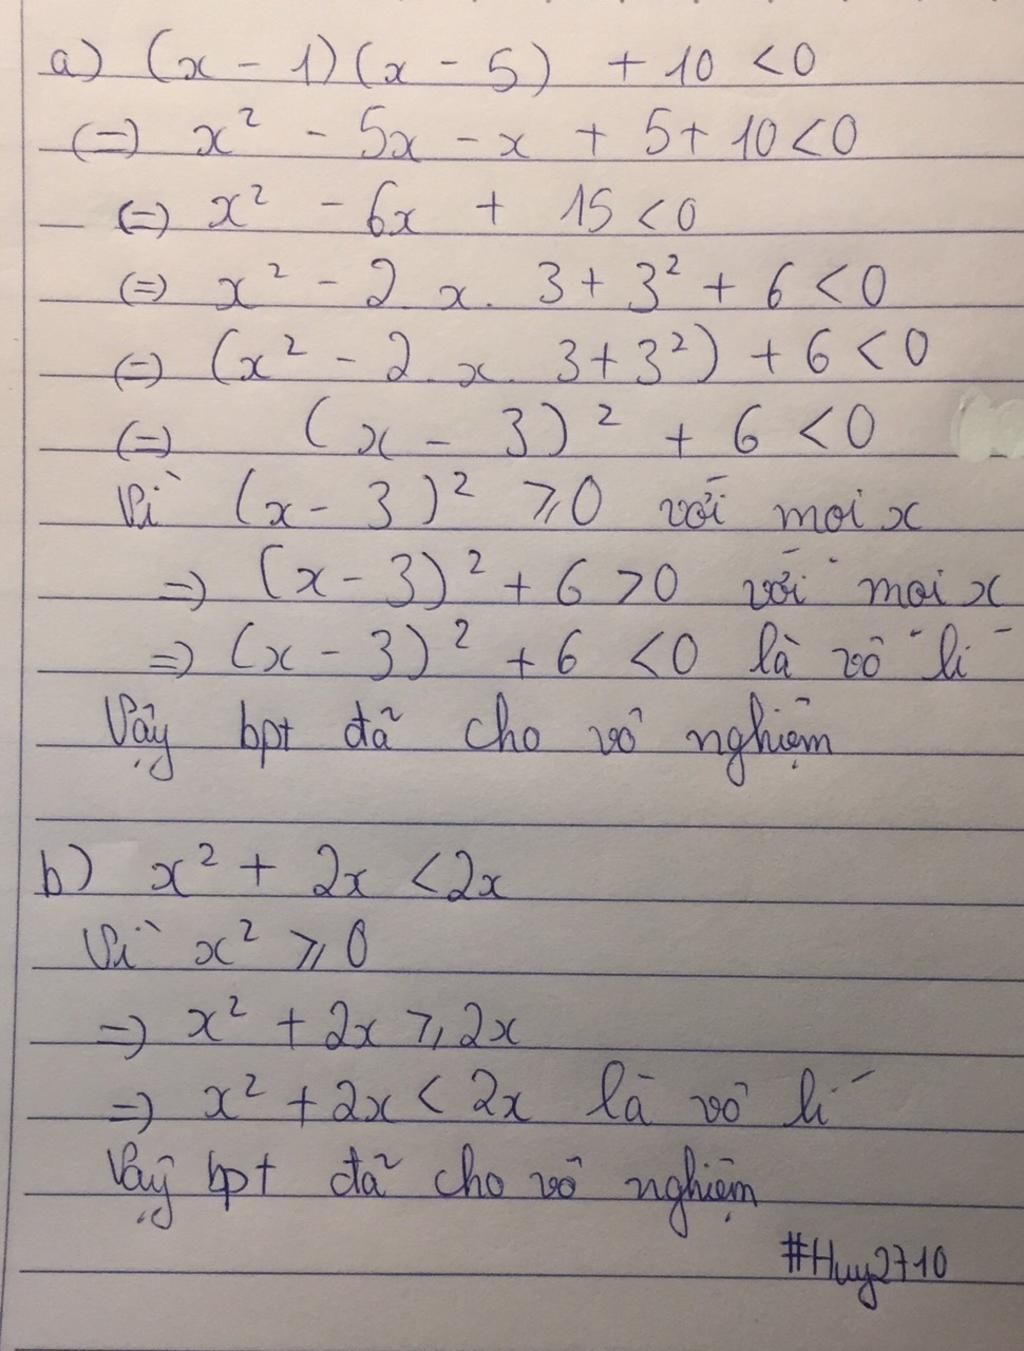 a) (x - 1)(x - 5) + 10 < 0
(=) x² - 5x - x + 5 + 10 < 0
(=) x² - 6x + 15 < 0
(=) x² - 2.x.3 + 3² + 6 < 0
(=) (x² - 2.x.3 + 3²) + 6 < 0
(=) (x - 3)² + 6 < 0
Vì (x - 3)² ⩾ 0 với mọi x
=) (x - 3)² + 6 > 0 với mọi x
=) (x - 3)² + 6 < 0 là vô lí
Vậy bpt đã cho vô nghiệm
b) x² + 2x < 2x
Vì x² ⩾ 0
=) x² + 2x ⩾ 2x
=) x² + 2x < 2x là vô lí
Vậy bpt đã cho vô nghiệm
#Huy2710